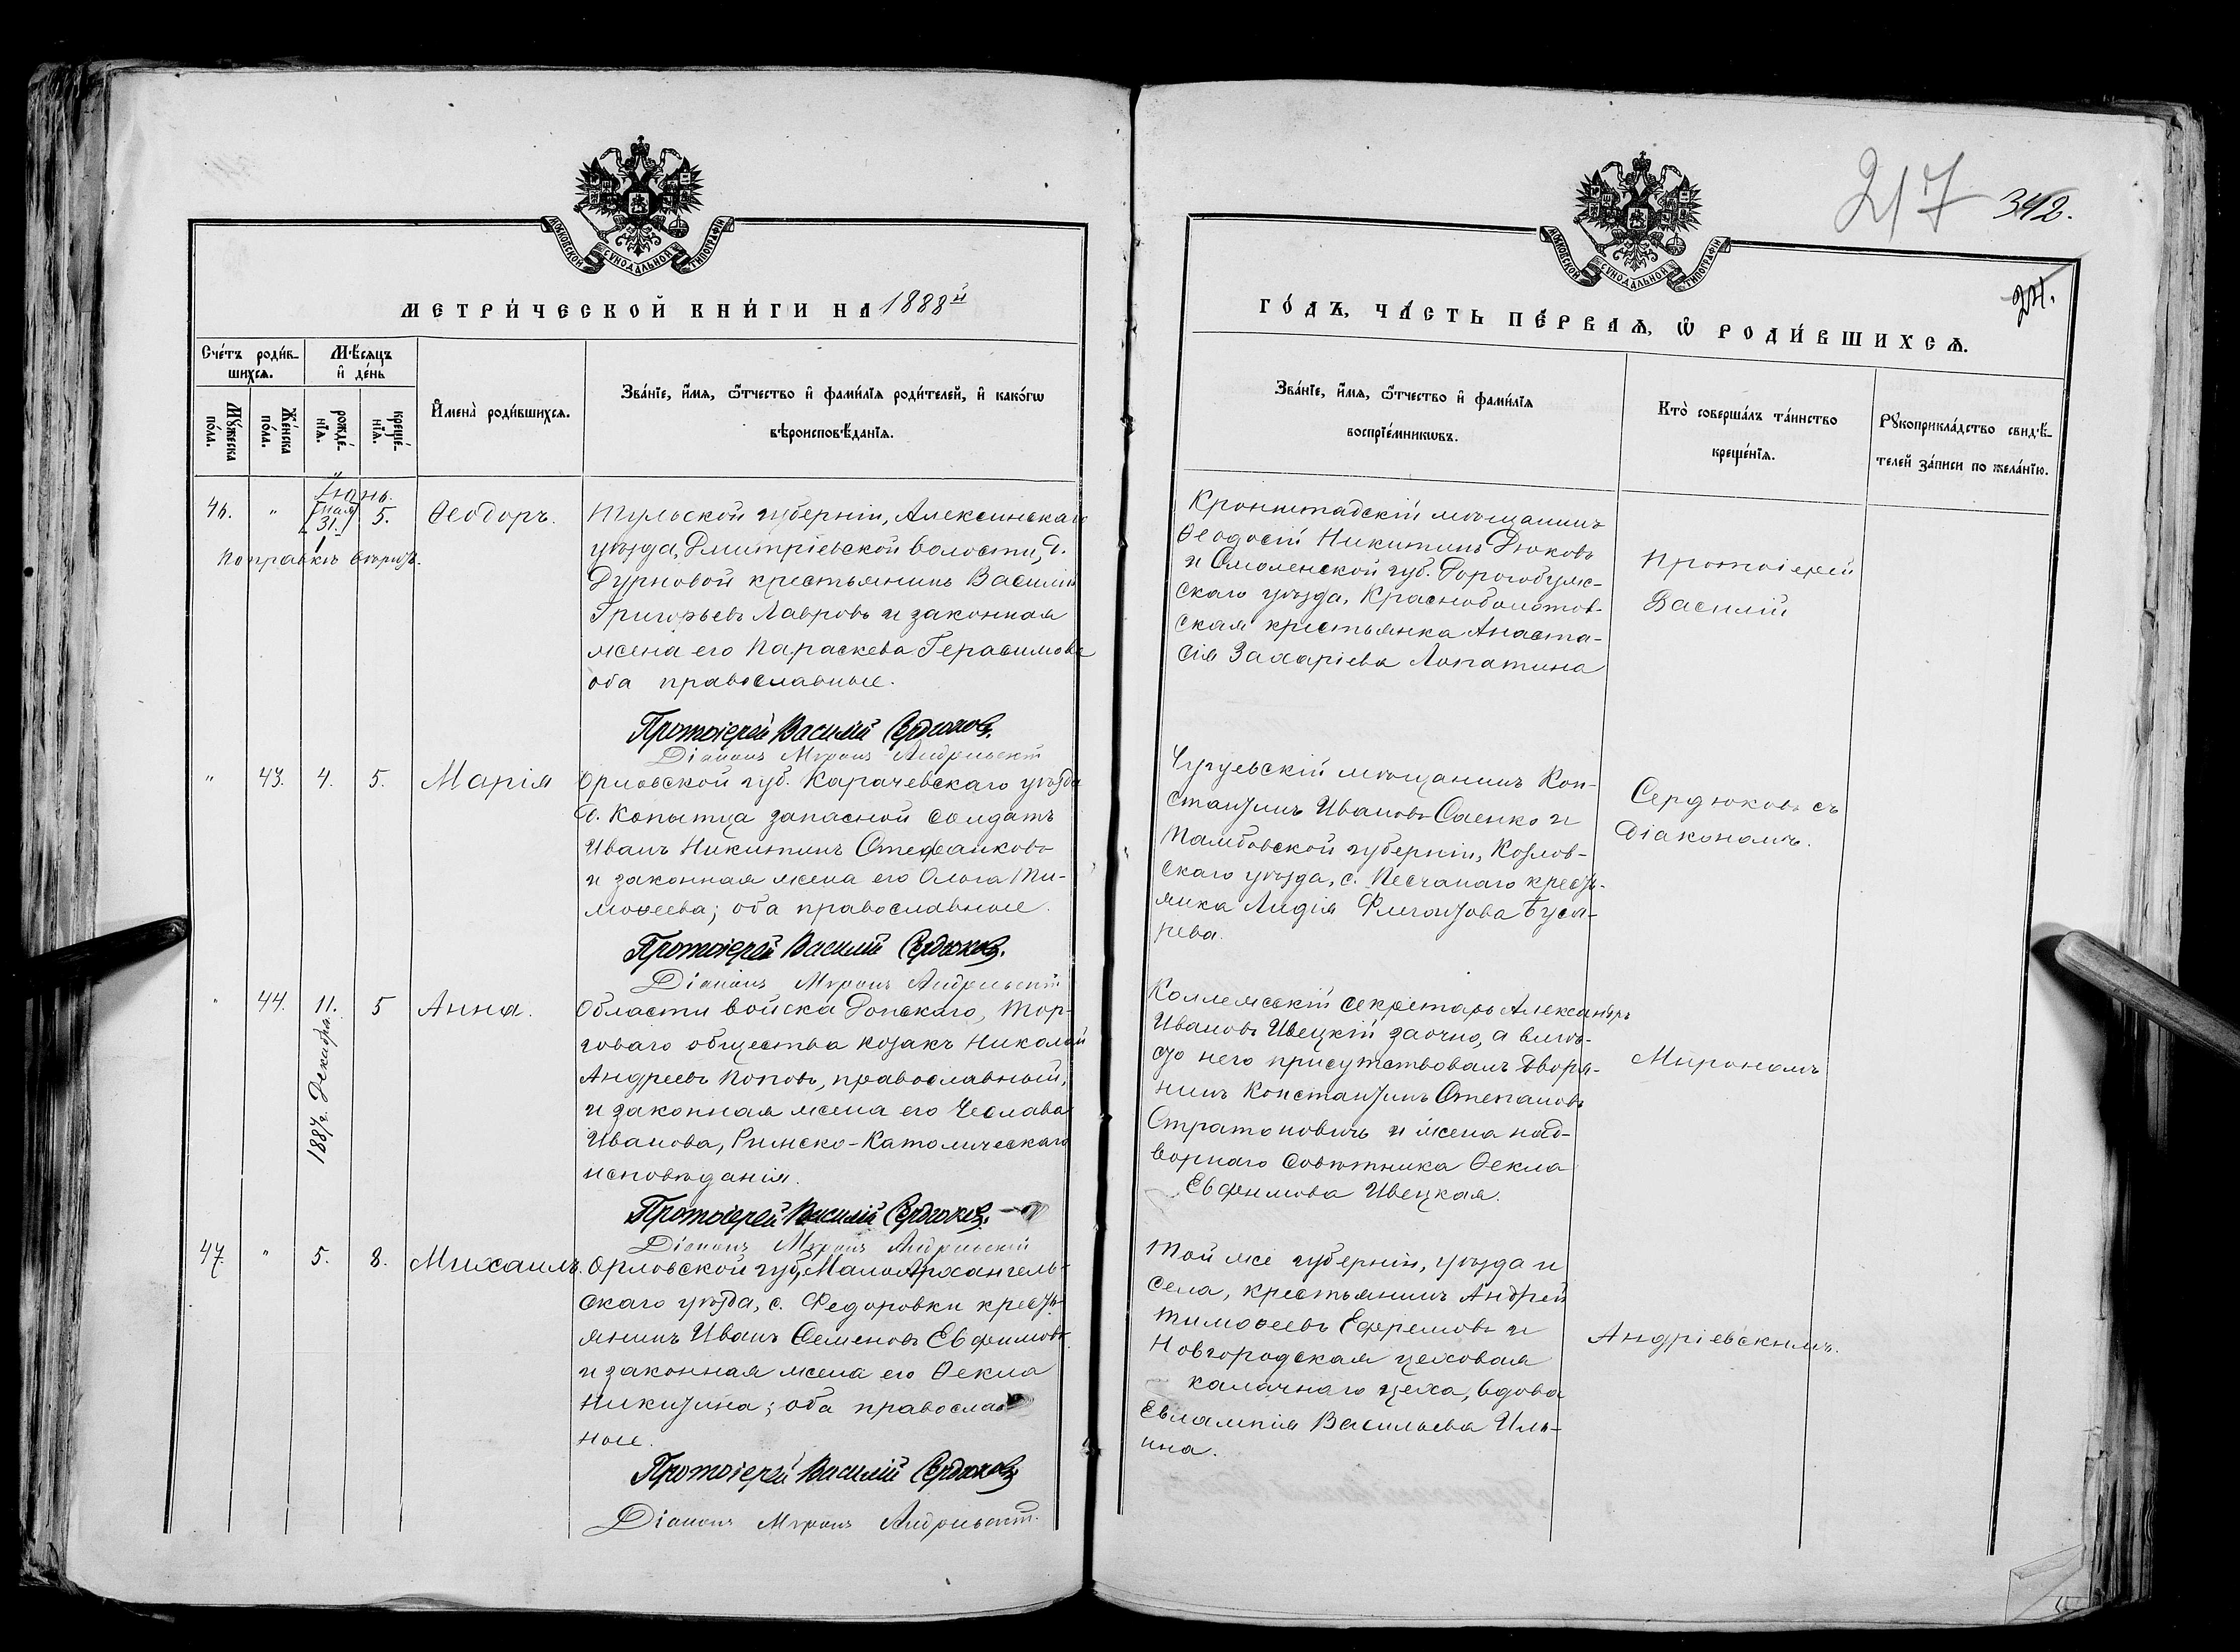 МОСКОВСКОЙ СѴНОДАЛЬНОЙ ТИПОГРАФІИ
МЕТРИ́ЧЕСКОЙ КНИ́ГИ НА 1888й
Сче́тъ роди́в-
шихся.
Мѣ́сяцъ
и҆ де́нь
Мꙋ́жеска
по́ла.
Же́нска
по́ла.
рожде́-
нїѧ.
креще́-
нїѧ.
И҆мена̀ роди́вшихсѧ.
Зва́нїе, и҆́мѧ, ѻ҆́тчество и҆ фами́лїѧ роди́телей, и҆ како́гѡ
вѣроисповѣ́данїѧ.
Іюнь.
46. " [мая 31.] 5. Ѳеодоръ.
Поправкѣ вѣрить.
Тульской губерніи, Алексинскаго
уѣзда, Дмитріевской волости, д.
Дурновой крестьянинъ Василій
Григорьевъ Лавровъ и законная
жена его Параскева Герасимова
оба православные.
Протоіерей Василій Сердюковъ.
Діаконъ Миронъ Андріевскій
" 43. 4. 5. Марія
Орловской губ. Карачевскаго уѣзда
д. Копытца запасной солдатъ
Иванъ Никитинъ Стефанковъ
и законная жена его Ольга Ти-
моѳеева; оба православные.
Протоіерей Василій Сердюковъ.
Діаконъ Миронъ Андріевскій
" 44. 11. 5 Анна.
1887 г. Декабря
Области войска Донскаго, Тор-
говаго общества козакъ Николай
Андреевъ Поповъ, православный,
и законная жена его Чеслава
Иванова, Римско-Католическаго
исповѣданія.
Протоіерей Василій Сердюковъ.
Діаконъ Миронъ Андріевскій
47. " 5. 8. Михаилъ.
Орловской губ, МалоАрхангель-
скаго уѣзда, с. Федоровки кресть-
янинъ Иванъ Семеновъ Евфимовъ
и законная жена его Ѳекла
Никитина; оба православ-
ные.
Протоіерей Василій Сердюковъ
Діаконъ Миронъ Андріевскій.
217 342.
МОСКОВСКОЙ СѴНОДАЛЬНОЙ ТИПОГРАФІИ
ГО́ДЪ, ЧА́СТЬ ПЕ́РВАѦ, Ѡ҆ РОДИ́ВШИХСѦ.
Зва́нїе, и҆́мѧ, ѻ҆́тчество и҆ фами́лїѧ
воспрїе́мникѡвъ.
Кто̀ соверша́лъ та́инство
креще́нїѧ.
Рꙋкоприкла́дство свидѣ́-
телей за́писи по жела́нїю.
Кронштадскій мѣщанинъ
Ѳеодосій Никитинъ Дюковъ
и Смоленской губ. Дорогобуж-
скаго уѣзда, Красноболотов-
ская крестьянка Анаста-
сія Захаріева Лопатина
Протоіерей
Василій
Чугуевскій мѣщанинъ Кон-
стантинъ Ивановъ Саенко и
Тамбовской губерніи, Козлов-
скаго уѣзда, с. Песчанаго кресть-
янка Лидія
Сердюковъ съ
Діакономъ.
Коллежскій секретарь Александръ
Ивановъ Ивецкій заочно, а вмѣ-
сто него присутствовалъ дворя-
нинъ Константинъ Степановъ
Стратоновичъ и жена над-
ворнаго совѣтника Ѳекла
Евфимова Ивецкая.
Мирономъ
Той же губерніи, уѣзда и
села, крестьянинъ Андрей
Тимоѳеевъ Ефремовъ и
Новгородская цеховая
калачнаго цеха, вдова
Евлампія Васильева Иль-
ина.
Андріевскимъ.